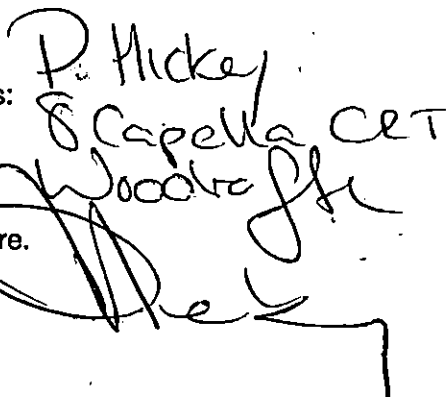 P. Hickey
s: 8 Capella CRT
Woodcroft
re.